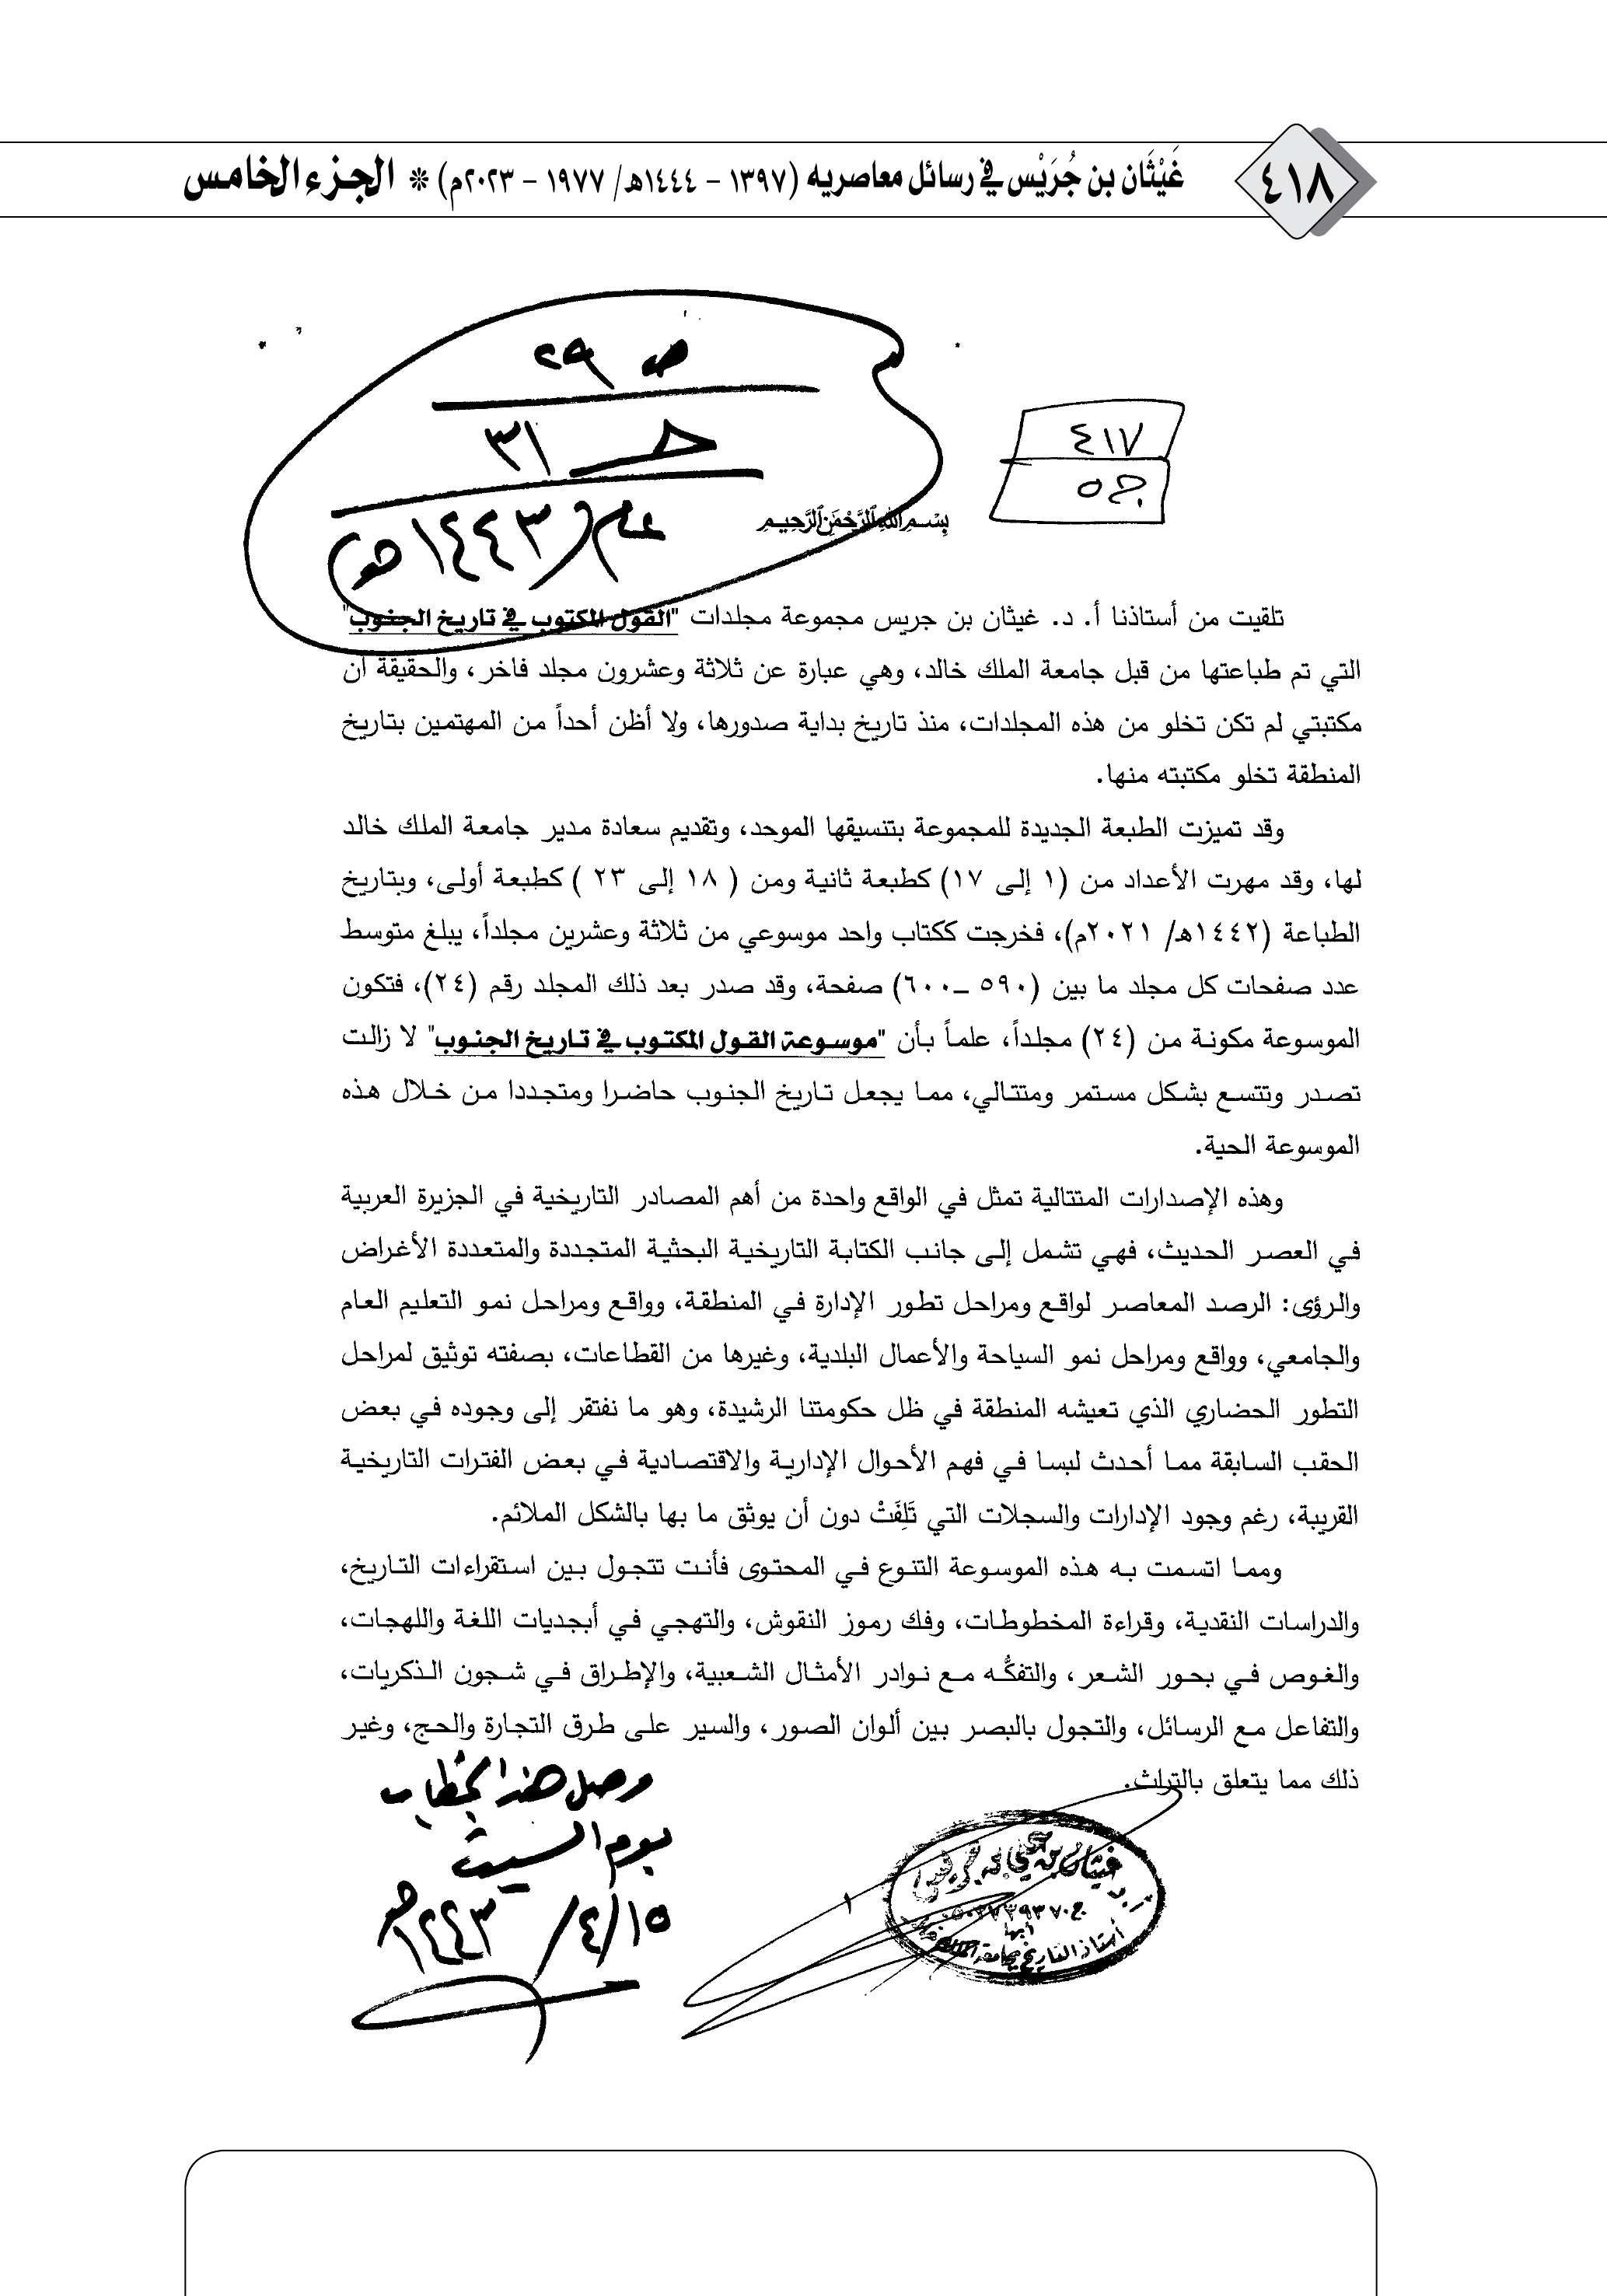 ٤١٨
غَيْثَان بن جُرَيْس في رسائل معاصريه (١٣٩٧ - ١٤٤٤هـ/ ١٩٧٧ - ٢٠٢٣م) * الجزء الخامس
ص ٢٩
حـ ٣١
عام/ ١٤٤٣هـ
٤١٧
ج ٥
بسم الله الرحمن الرحيم
تلقيت من أستاذنا أ. د. غيثان بن جريس مجموعة مجلدات "القول المكتوب في تاريخ الجنوب"
التي تم طباعتها من قبل جامعة الملك خالد، وهي عبارة عن ثلاثة وعشرون مجلد فاخر، والحقيقة أن
مكتبتي لم تكن تخلو من هذه المجلدات، منذ تاريخ بداية صدورها، ولا أظن أحداً من المهتمين بتاريخ
المنطقة تخلو مكتبته منها.
وقد تميزت الطبعة الجديدة للمجموعة بتنسيقها الموحد، وتقديم سعادة مدير جامعة الملك خالد
لها، وقد مهرت الأعداد من (١ إلى ١٧) كطبعة ثانية ومن ( ١٨ إلى ٢٣ ) كطبعة أولى، وبتاريخ
الطباعة (١٤٤٢هـ/ ٢٠٢١م)، فخرجت ككتاب واحد موسوعي من ثلاثة وعشرين مجلداً، يبلغ متوسط
عدد صفحات كل مجلد ما بين (٥٩٠ –٦٠٠) صفحة، وقد صدر بعد ذلك المجلد رقم (٢٤)، فتكون
الموسوعة مكونة من (٢٤) مجلداً، علماً بأن "موسوعة القول المكتوب في تاريخ الجنوب" لا زالت
تصدر وتتسع بشكل مستمر ومتتالي، مما يجعل تاريخ الجنوب حاضرا ومتجددا من خلال هذه
الموسوعة الحية.
وهذه الإصدارات المتتالية تمثل في الواقع واحدة من أهم المصادر التاريخية في الجزيرة العربية
في العصر الحديث، فهي تشمل إلى جانب الكتابة التاريخية البحثية المتجددة والمتعددة الأغراض
والرؤى: الرصد المعاصر لواقع ومراحل تطور الإدارة في المنطقة، وواقع ومراحل نمو التعليم العام
والجامعي، وواقع ومراحل نمو السياحة والأعمال البلدية، وغيرها من القطاعات، بصفته توثيق لمراحل
التطور الحضاري الذي تعيشه المنطقة في ظل حكومتنا الرشيدة، وهو ما نفتقر إلى وجوده في بعض
الحقب السابقة مما أحدث لبسا في فهم الأحوال الإدارية والاقتصادية في بعض الفترات التاريخية
القريبة، رغم وجود الإدارات والسجلات التي تَلِفَتْ دون أن يوثق ما بها بالشكل الملائم.
ومما اتسمت به هذه الموسوعة التنوع في المحتوى فأنت تتجول بين استقراءات التاريخ،
والدراسات النقدية، وقراءة المخطوطات، وفك رموز النقوش، والتهجي في أبجديات اللغة واللهجات،
والغوص في بحور الشعر، والتفكُّه مع نوادر الأمثال الشعبية، والإطراق في شجون الذكريات،
والتفاعل مع الرسائل، والتجول بالبصر بين ألوان الصور، والسير على طرق التجارة والحج، وغير
ذلك مما يتعلق بالتراث.
وصل هذا الخطاب
يوم السبت
١٥/٤/١٤٤٣هـ
١
غيثان بن علي بن جريس
أبها
أستاذ التاريخ بجامعة الملك خالد